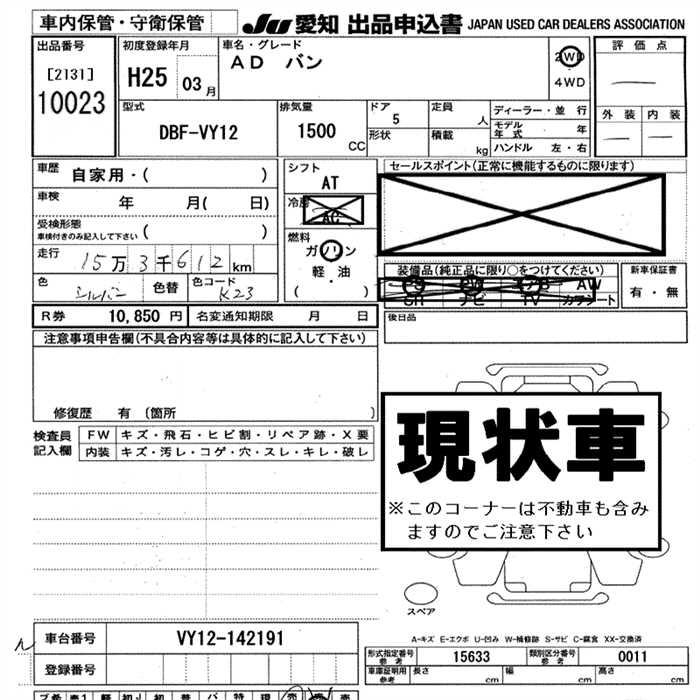 車内保管・守衛保管
JU 愛知 出品申込書 JAPAN USED CAR DEALERS ASSOCIATION
出品番号
[2131]
10023
初度登録年月
H25 03月
車名・グレード
AD バン
2WD
4WD
評価点
外装 内装
型式
DBF-VY12
排気量
1500 CC
ドア
5
形状
定員
人
積載
kg
ディーラー・並行
モデル年式 年
ハンドル 左・右
車歴
自家用・( )
車検
年 月( 日)
受検形態
車検付きのみ記入して下さい ( )
走行
15万3千612 km
色
シルバー
色替
色コード
K23
シフト
AT
冷房
AC
燃料
ガソリン
軽・油
( )
セールスポイント(正常に機能するものに限ります)
装備品(純正品に限り○をつけてください)
PS PW AB AW
SR ナビ TV カラシート
新車保証書
有・無
R券 10,850 円 名変通知期限 月 日
後日品
注意事項申告欄(不具合内容等は具体的に記入して下さい)
修復歴 有 〔箇所 〕
検査員記入欄
FW キズ・飛石・ヒビ割・リペア跡・X要
内装 キズ・汚レ・コゲ・穴・スレ・キレ・破レ
現状車
※このコーナーは不動車も含み
ますのでご注意下さい
スペア
A-キズ E-エクボ U-凹み W-補修跡 S-サビ C-腐食 XX-交換済
車台番号
VY12-142191
登録番号
形式指定番号 参考 15633 類別区分番号 参考 0011
車庫証明用 参考 長さ cm 幅 cm 高さ cm